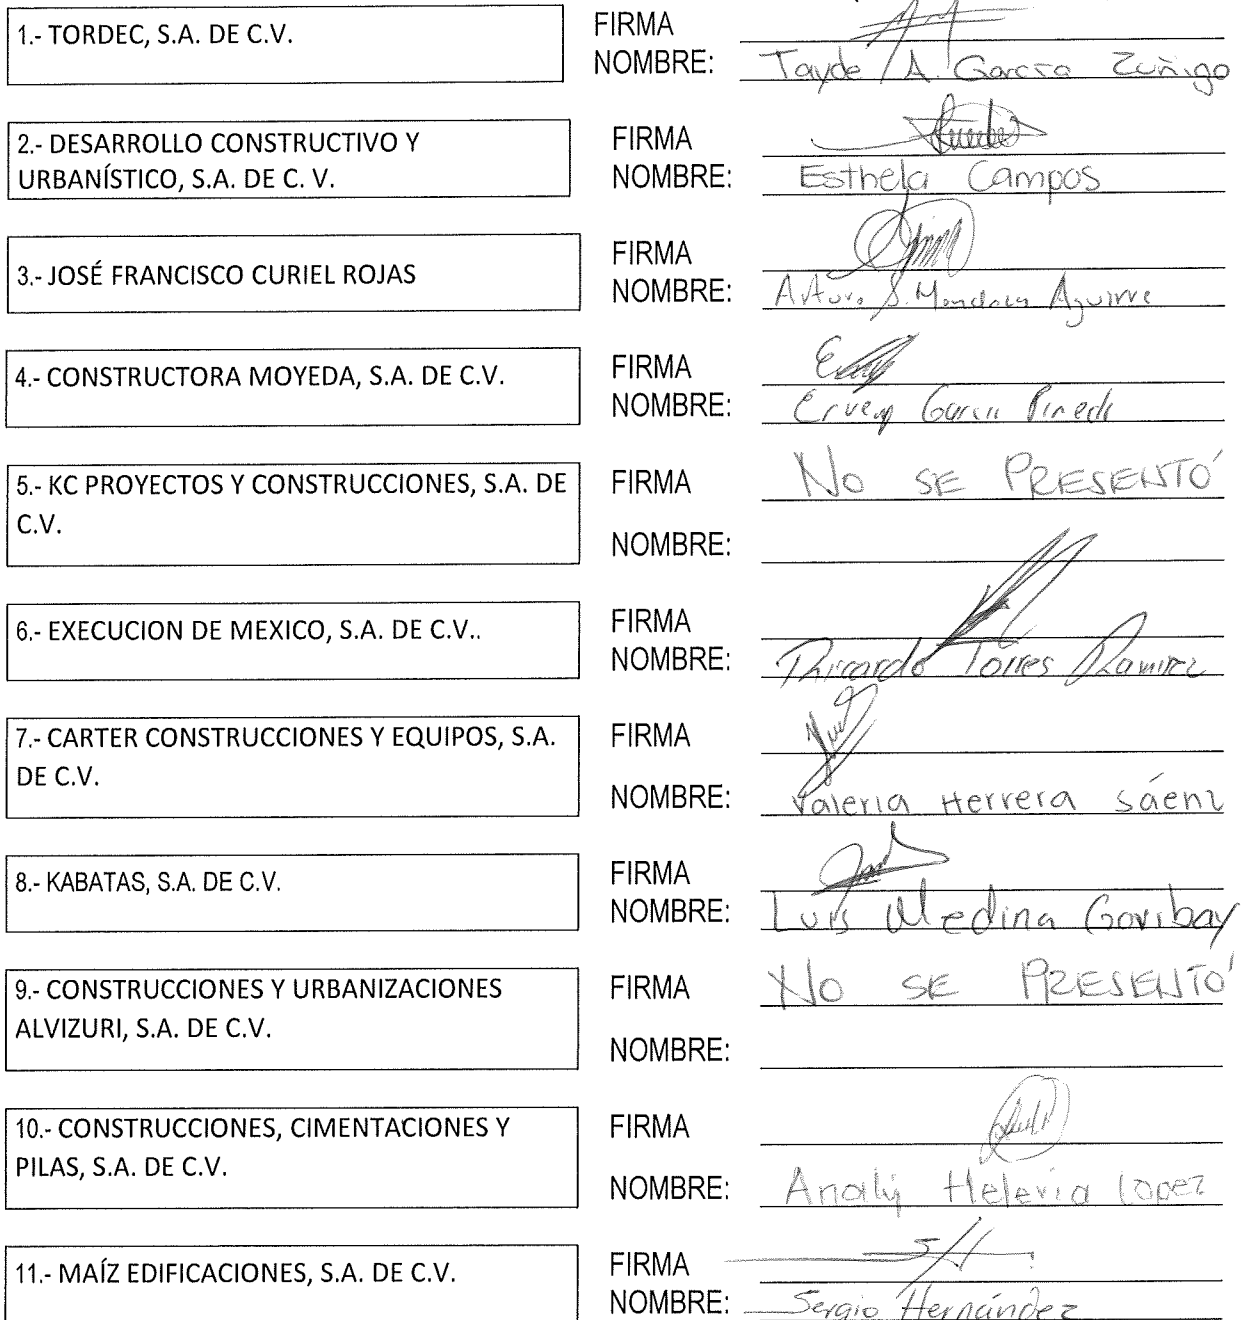 1.- TORDEC, S.A. DE C.V.
FIRMA
NOMBRE: Tayde A. García Zuñigo
2.- DESARROLLO CONSTRUCTIVO Y
URBANÍSTICO, S.A. DE C. V.
FIRMA
NOMBRE: Esthela Campos
3.- JOSÉ FRANCISCO CURIEL ROJAS
FIRMA
NOMBRE: Arturo S. Aguirre
4.- CONSTRUCTORA MOYEDA, S.A. DE C.V.
FIRMA
NOMBRE: García
5.- KC PROYECTOS Y CONSTRUCCIONES, S.A. DE
C.V.
FIRMA NO SE PRESENTÓ
NOMBRE:
6.- EXECUCION DE MEXICO, S.A. DE C.V..
FIRMA
NOMBRE: Torres Ramirez
7.- CARTER CONSTRUCCIONES Y EQUIPOS, S.A.
DE C.V.
FIRMA
NOMBRE: Valeria Herrera Sáenz
8.- KABATAS, S.A. DE C.V.
FIRMA
NOMBRE: Luis Medina Garibay
9.- CONSTRUCCIONES Y URBANIZACIONES
ALVIZURI, S.A. DE C.V.
FIRMA NO SE PRESENTÓ
NOMBRE:
10.- CONSTRUCCIONES, CIMENTACIONES Y
PILAS, S.A. DE C.V.
FIRMA
NOMBRE: Analy Lopez
11.- MAÍZ EDIFICACIONES, S.A. DE C.V.
FIRMA
NOMBRE: Sergio Hernández